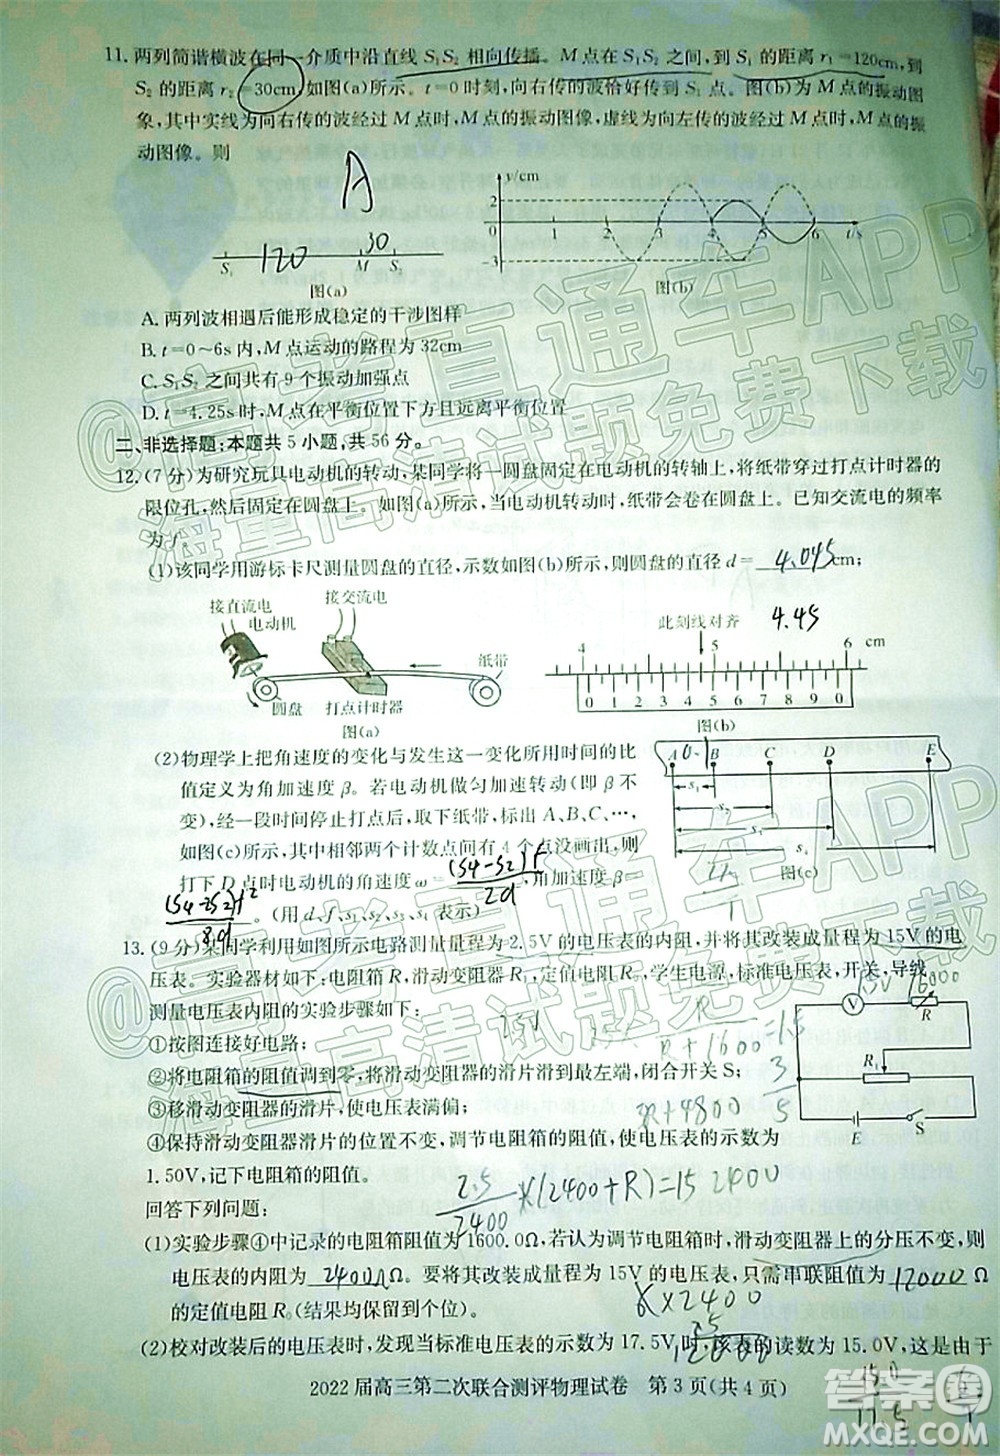 11. 两列简谐横波在同一介质中沿直线 S₁S₂ 相向传播。M 点在 S₁S₂ 之间,到 S₁ 的距离 r₁=120cm,到
S₂ 的距离 r₂=30cm,如图(a)所示。t=0 时刻,向右传的波恰好传到 S₁ 点。图(b)为 M 点的振动图
象,其中实线为向右传的波经过 M 点时,M 点的振动图像,虚线为向左传的波经过 M 点时,M 点的振
动图像。则
A
y/cm
2
0
-3
1 2 3 4 5 6 t/s
120 30
S₁ M S₂
图(a) 图(b)
A. 两列波相遇后能形成稳定的干涉图样
B. t=0~6s 内,M 点运动的路程为 32cm
C. S₁S₂ 之间共有 9 个振动加强点
D. t=4.25s 时,M 点在平衡位置下方且远离平衡位置
二、非选择题:本题共 5 小题,共 56 分。
12. (7 分)为研究玩具电动机的转动,某同学将一圆盘固定在电动机的转轴上,将纸带穿过打点计时器的
限位孔,然后固定在圆盘上。如图(a)所示,当电动机转动时,纸带会卷在圆盘上。已知交流电的频率
为 f。
(1)该同学用游标卡尺测量圆盘的直径,示数如图(b)所示,则圆盘的直径 d= 4.045 cm;
4.45
接直流电 接交流电
电动机
纸带
圆盘 打点计时器
图(a)
此刻线对齐
4 5 6 cm
0 1 2 3 4 5 6 7 8 9 0
图(b)
(2)物理学上把角速度的变化与发生这一变化所用时间的比
值定义为角加速度 β。若电动机做匀加速转动(即 β 不
变),经一段时间停止打点后,取下纸带,标出 A、B、C、…,
如图(c)所示,其中相邻两个计数点间有 4 个点没画出,则
打下 D 点时电动机的角速度 ω= (S4-S2)f/2d ,角加速度 β=
(S4-2S2)f²/8d 。(用 d、f、s₁、s₂、s₃、s₄ 表示)
A B C D E
s₁
s₂
s₃
s₄
图(c)
13. (9 分)某同学利用如图所示电路测量量程为 2.5V 的电压表的内阻,并将其改装成量程为 15V 的电
压表。实验器材如下:电阻箱 R,滑动变阻器 R₁,定值电阻,学生电源,标准电压表,开关,导线。
测量电压表内阻的实验步骤如下:
①按图连接好电路;
②将电阻箱的阻值调到零,将滑动变阻器的滑片滑到最左端,闭合开关 S;
③移动滑动变阻器的滑片,使电压表满偏;
④保持滑动变阻器滑片的位置不变,调节电阻箱的阻值,使电压表的示数为
1.50V,记下电阻箱的阻值。
V R
R₁
E S
2.5/2400 ×(2400+R)=15 2400
回答下列问题:
(1)实验步骤④中记录的电阻箱阻值为 1600.0Ω,若认为调节电阻箱时,滑动变阻器上的分压不变,则
电压表的内阻为 2400Ω Ω。要将其改装成量程为 15V 的电压表,只需串联阻值为 12000 Ω
的定值电阻 R₀(结果均保留到个位)。
(2)校对改装后的电压表时,发现当标准电压表的示数为 17.5V 时,该表的读数为 15.0V,这是由于
2022 届高三第二次联合测评物理试卷 第 3 页(共 4 页)
@高考直通车APP
海量高清试题免费下载
@高考直通车APP
海量高清试题免费下载
答案圈
MXQE.COM